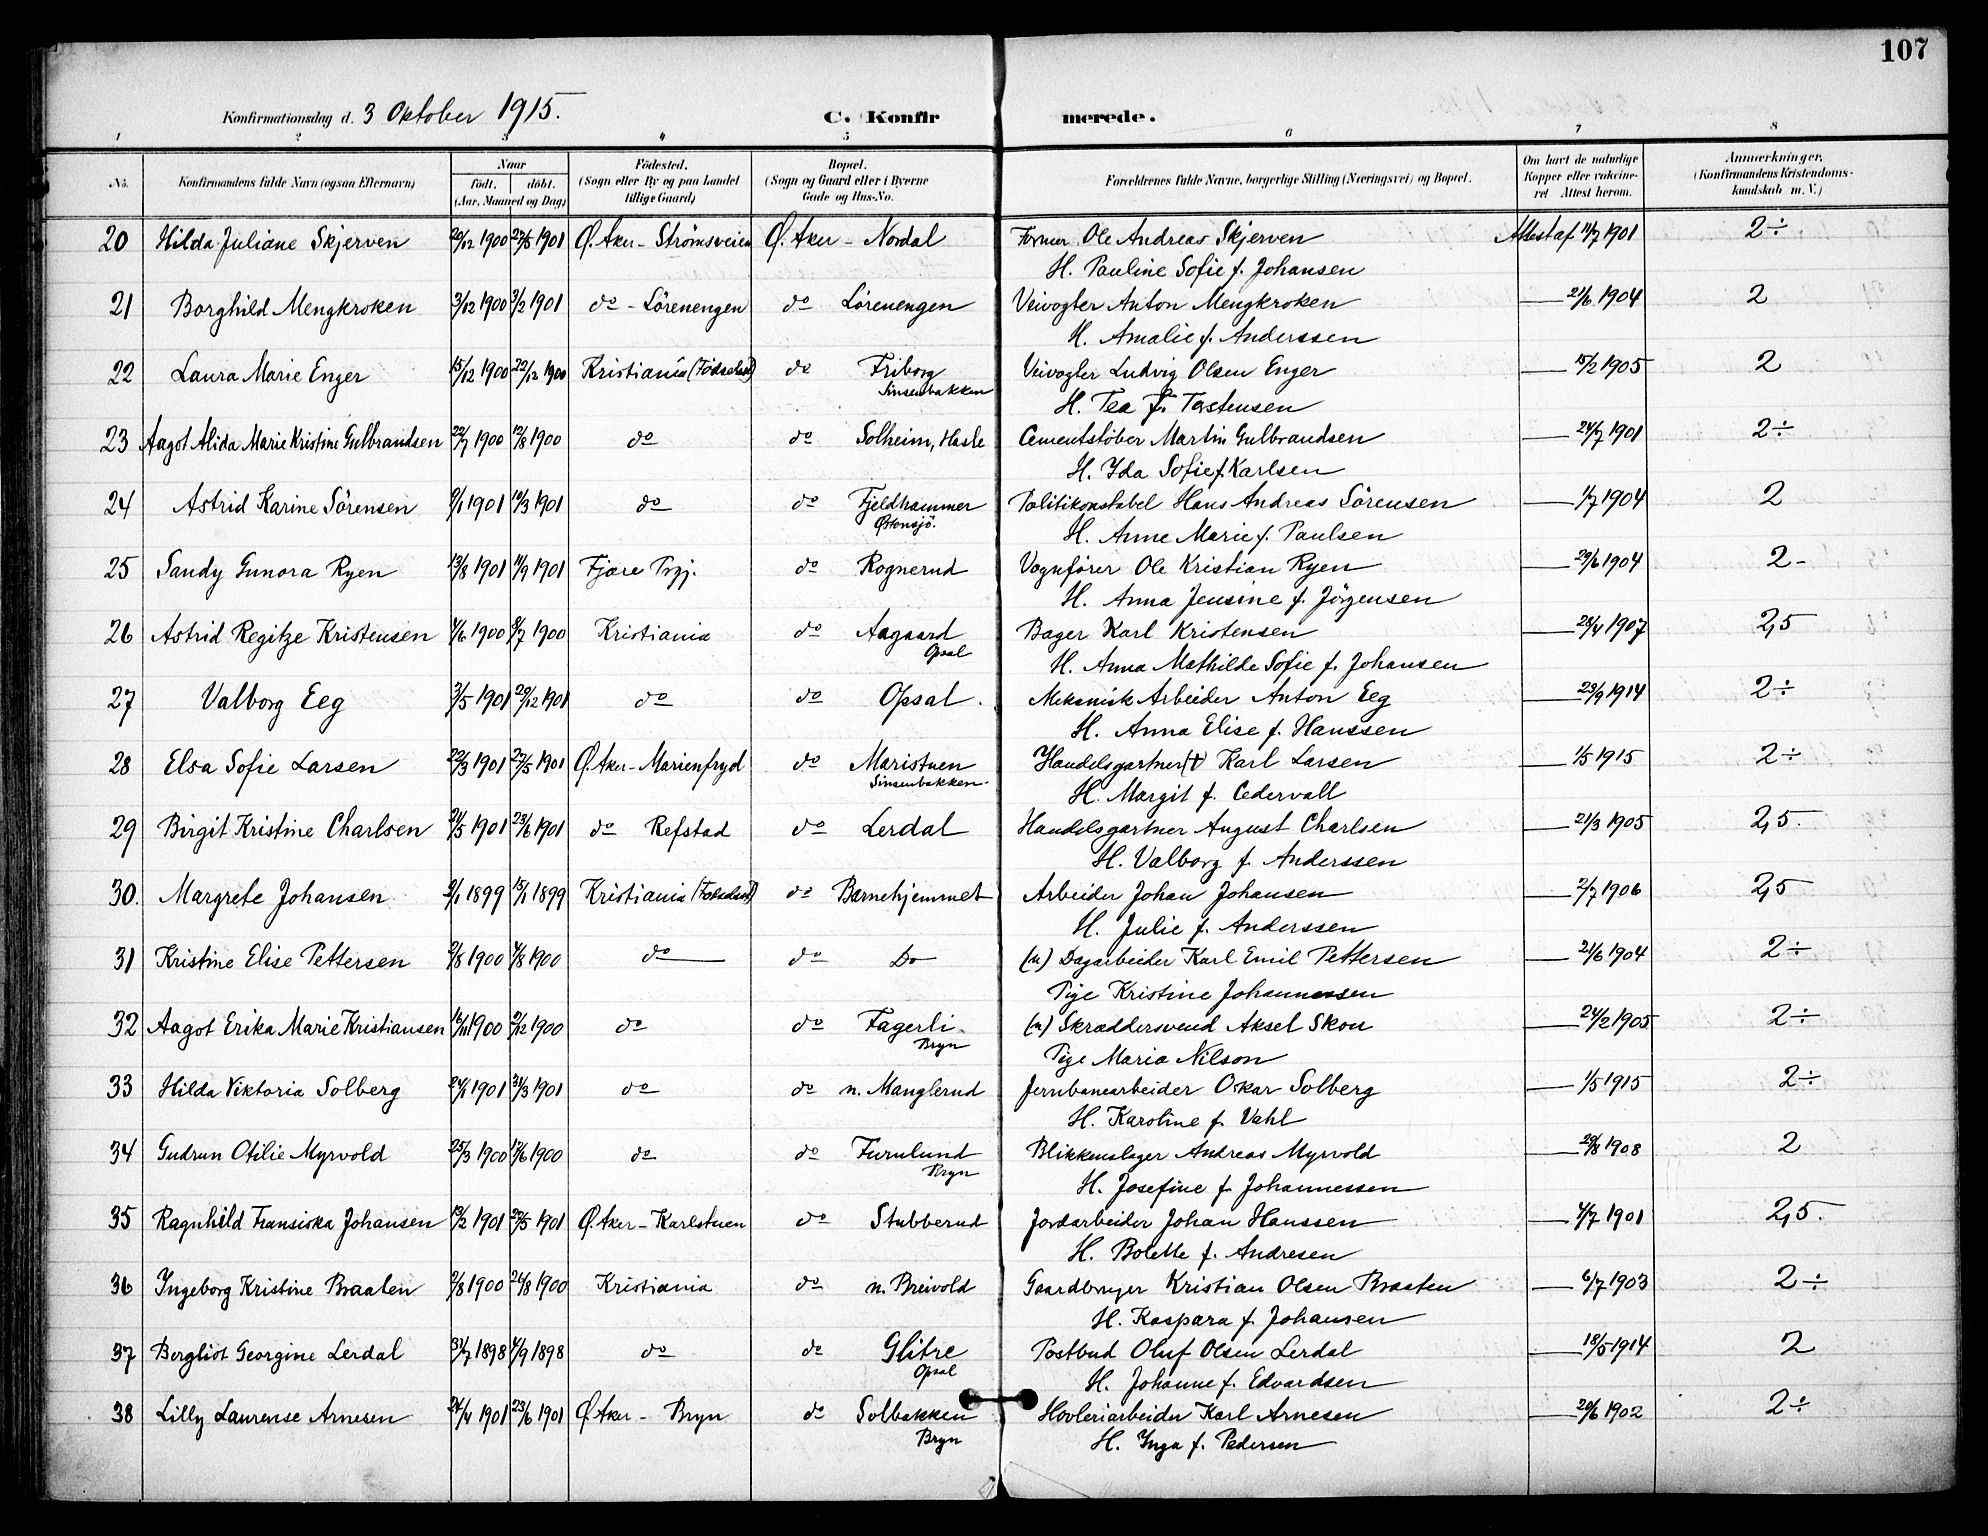 107
Konfirmationsdag d. 3 Oktober 1915.
C. Konfirmerede.
1 2 3 4 5 6 7 8
No. Konfirmandens fulde Navn (ogsaa Efternavn) Naar født. døbt. (Aar, Maaned og Dag) Fødested. (Sogn eller By og paa Landet tillige Gaard) Bopæl. (Sogn og Gaard eller i Byerne Gade og Hus-No. Forældrenes fulde Navne, borgerlige Stilling (Næringsvei) og Bopæl. Om havt de naturlige Kopper eller vakcineret Attest herom. Anmærkninger. (Konfirmandens Kristendomskundskab m. V.)
20 Hilda Juliane Skjerven 20/12 1900 27/5 1901 Ø. Aker - Strømsveien Ø. Aker - Nordal Former Ole Andreas Skjerven Attest af 11/7 1901 2÷
H. Pauline Sofie f. Johansen
21 Borghild Mengkroken 3/12 1900 3/2 1901 do - Lörenengen do Lörenengen Veivogter Anton Mengkroken — 21/6 1904 2
H. Amalie f. Anderssen
22 Laura Marie Enger 15/12 1900 22/12 1900 Kristiania (Fødselsst) do Friborg Veivogter Ludvig Olsen Enger — 15/2 1905 2
Sinsenbakken
H. Tea f. Torstensen
23 Aagot Alida Marie Kristine Gulbrandsen 22/7 1900 12/8 1900 do do Solheim, Hasle Cementstøber Martin Gulbrandsen — 24/7 1901 2÷
H. Ida Sofie f. Karlsen
24 Astrid Karine Sörensen 9/1 1901 10/3 1901 do do Fjeldhammer Politikonstabel Hans Andreas Sörensen — 1/7 1904 2
Østensjö.
H. Anne Marie f. Paulsen
25 Sandy Gunora Ryen 13/8 1901 11/9 1901 Fjære Prgj. do Rognerud Vognfører Ole Kristian Ryen — 29/6 1904 2-
H. Anna Jensine f. Jörgensen
26 Astrid Regitze Kristensen 4/6 1900 8/7 1900 Kristiania do Aagaard Bager Karl Kristensen — 28/4 1907 2,5
Opsal
H. Anna Mathilde Sofie f. Johansen
27 Valborg Eeg 3/5 1901 29/12 1901 do do Opsal. Mekanisk Arbeider Anton Eeg — 23/9 1914 2÷
H. Anna Elise f. Hanssen
28 Elsa Sofie Larsen 22/3 1901 27/5 1901 Ø. Aker - Marienfryd do Maristuen Handelsgartner (†) Karl Larsen — 1/5 1915 2÷
Sinsenbakken.
H. Margit f. Cedervall
29 Birgit Kristine Charlsen 21/5 1901 23/6 1901 do Refstad do Lerdal Handelsgartner August Charlsen — 21/3 1905 2,5.
H. Valborg f. Anderssen
30. Margrete Johansen 2/1 1899 15/1 1899 Kristiania (Fødselsst) do Barnehjemmet Arbeider Johan Johansen — 2/7 1906 2,5
H. Julie f. Anderssen
31 Kristine Elise Pettersen 2/8 1900 4/8 1900 do do Do (u) Dagarbeider Karl Emil Pettersen — 21/6 1904 2÷
Pige Kristine Johannessen
32 Aagot Erika Marie Kristiansen 16/11 1900 2/12 1900 do do Fagerli. (u) Skræddersvend Aksel Skou — 24/2 1905 2÷
Bryn
Pige Maria Nilson
33 Hilda Viktoria Solberg 24/1 1901 31/3 1901 do do n. Manglerud Jernbanearbeider Oskar Solberg — 1/5 1915 2÷
H. Karoline f. Vahl
34 Gudrun Otilie Myrvold 25/3 1900 17/6 1900 do do Furulund Blikkenslager Andreas Myrvold — 29/8 1908 2
Bryn
H. Josefine f. Johannessen
35 Ragnhild Fransiska Johansen 19/2 1901 27/5 1901 Ø. Aker - Karlstuen do Stubberud Jordarbeider Johan Hanssen — 4/7 1901 2,5.
H. Bolette f. Andresen
36 Ingeborg Kristine Braaten 2/8 1900 24/8 1900 Kristiania do n. Breivold Gaardbruger Kristian Olsen Braaten — 6/7 1903 2÷
H. Kaspara f. Johansen
37 Bergliot Georgine Lerdal 31/7 1898 4/9 1898 do do Glitre Postbud Oluf Olsen Lerdal — 18/5 1914 2
Opsal
H. Johanne f. Edvardsen
38 Lilly Laurense Arnesen 24/4 1901 23/6 1901 Ø. Aker - Bryn do Solbakken Hovleriarbeider Karl Arnesen — 20/6 1902 2÷
Bryn
H. Inga f. Pedersen